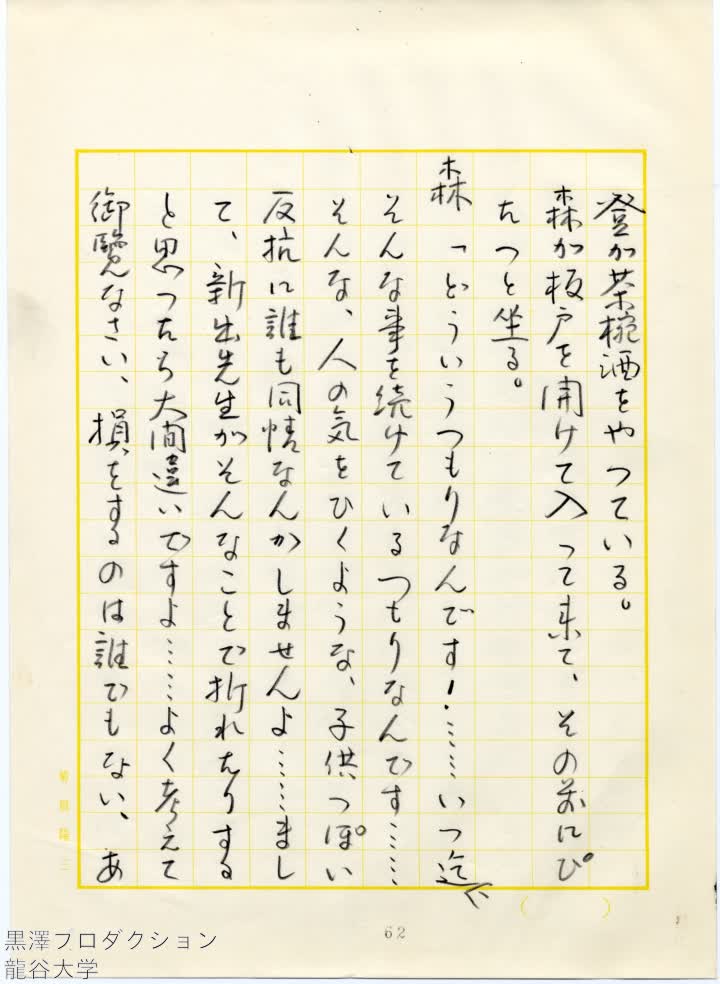 登が茶椀酒をやつている。
森が板戸を開けて入って来て、その前にぴ
たつと坐る。
森　「どういうつもりなんです！……いつ迄
そんな事を続けているつもりなんです……
そんな、人の気をひくような、子供つぽい
反抗に誰も同情なんかしませんよ……まし
て、新出先生がそんなことで折れたりする
と思つたら大間違いですよ……よく考えて
御覽なさい、損をするのは誰でもない、あ
62
黒澤プロダクション
龍谷大学